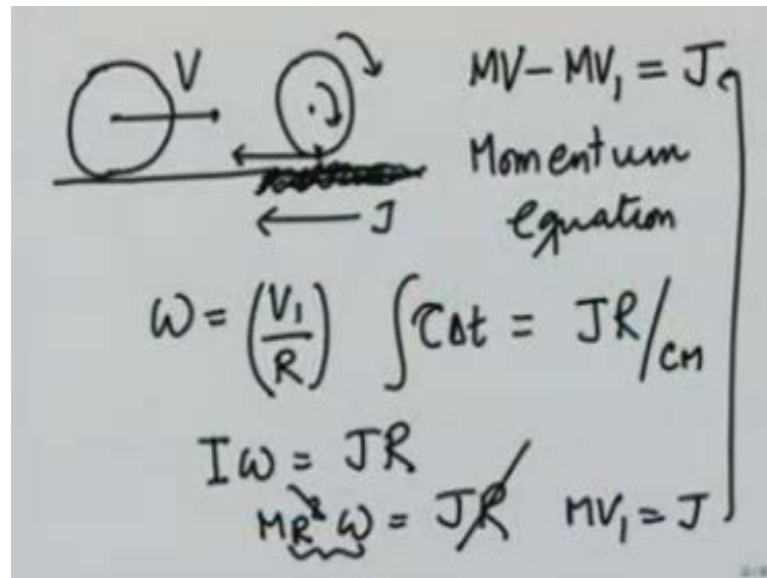 V
MV - MV₁ = J
Momentum
equation
J
ω = (V₁/R) ∫τΔt = JR/CM
Iω = JR
MR²ω = JR MV₁ = J